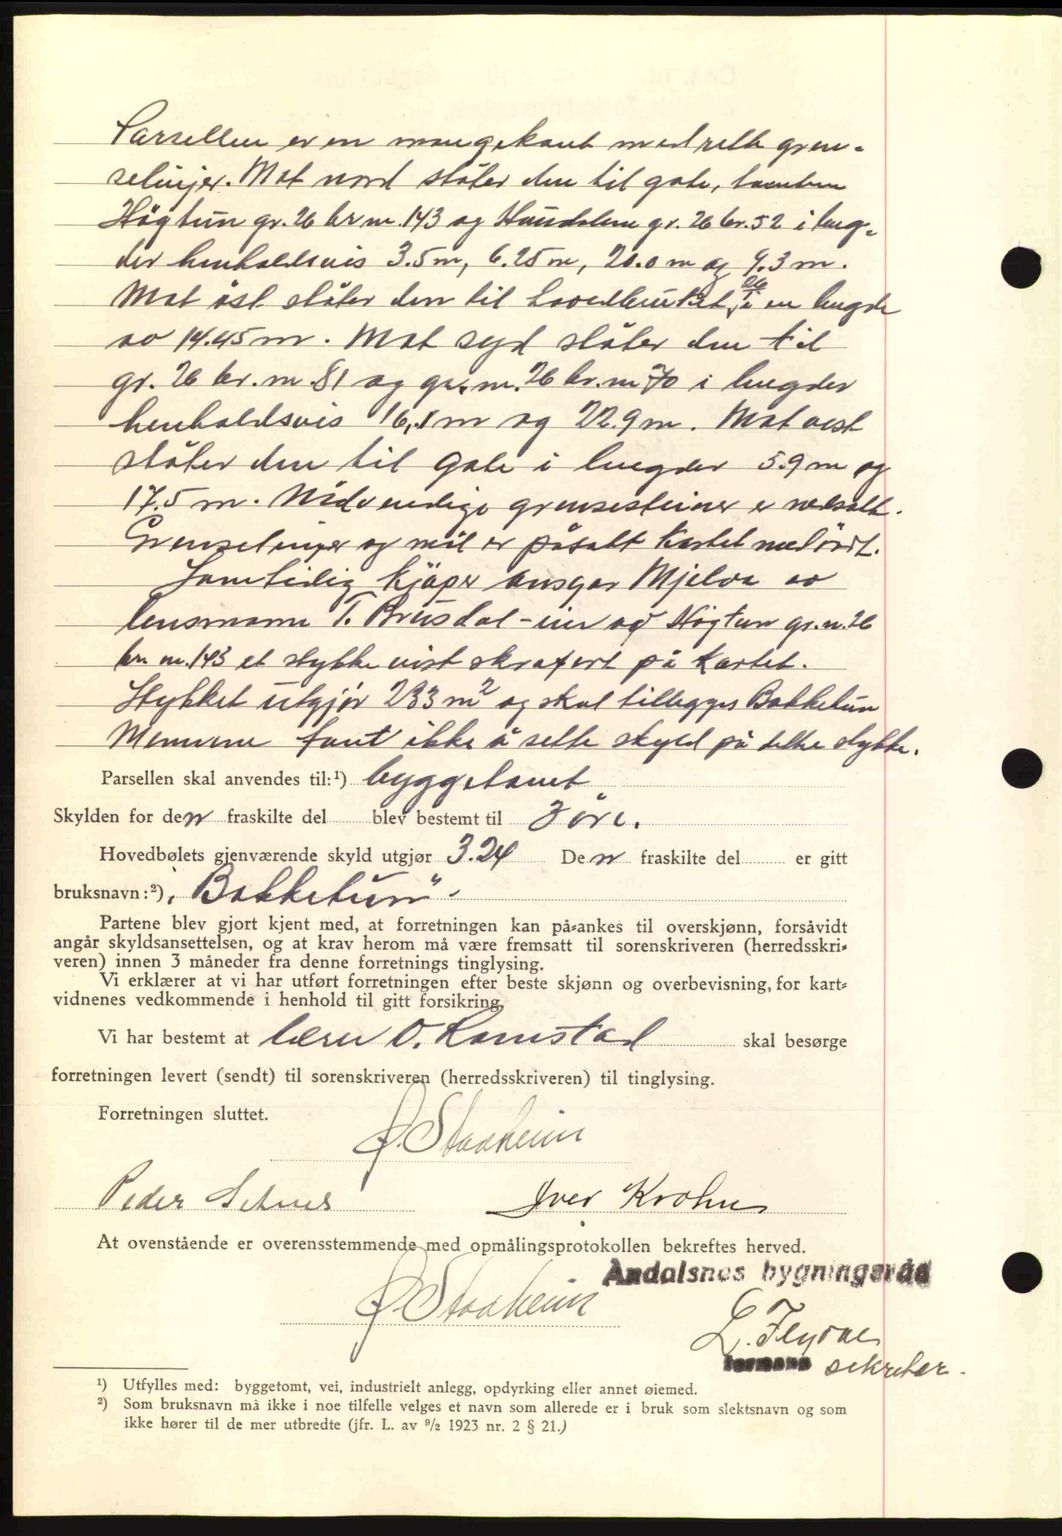 Parsellen er en mangekant med rette gren-
selinjer. Mot nord støter den til gate, tomten
Høgtun gr. 26 br. nr. 143 og gr. 26 br. 52 i leng-
der henholdsvis 3.5 m, 6.25 m, 20.0 m og 9.3 m.
Mot øst støter den til hovedbruket i en lengde
av 14.45 m. Mot syd støter den til
gr. 26 br. nr. 81 og gr. nr. 26 br. nr. 70 i lengder
henholdsvis 16,1 m og 22.9 m. Mot vest
støter den til gate i lengder 5.9 m og
17.5 m. Nødvendige grensesteiner er nedsatt.
Grenselinjer og mål er påsatt kartet med rødt.
Samtidig kjøper Ansgar Mjelva av
lensmann T. Brusdal - eier av Høgtun gr. nr. 26
br. nr. 143 et stykke vist skrafert på kartet.
Stykket utgjør 233 m² og skal tillegges Bakketun
Mennene fant ikke å sette skyld på dette stykke.
Parsellen skal anvendes til:¹) byggetomt
Skylden for den fraskilte del blev bestemt til 2 øre.
Hovedbølets gjenværende skyld utgjør 3.24 Den fraskilte del er gitt
bruksnavn:²) „Bakketun"
Partene blev gjort kjent med, at forretningen kan på-ankes til overskjønn, forsåvidt
angår skyldsansettelsen, og at krav herom må være fremsatt til sorenskriveren (herredsskri-
veren) innen 3 måneder fra denne forretnings tinglysing.
Vi erklærer at vi har utført forretningen efter beste skjønn og overbevisning, for kart-
vidnenes vedkommende i henhold til gitt forsikring.
Vi har bestemt at lærer O. Ramstad skal besørge
forretningen levert (sendt) til sorenskriveren (herredsskriveren) til tinglysing.
Forretningen sluttet.
Staaheim
Peder Iver Krohn
At ovenstående er overensstemmende med opmålingsprotokollen bekreftes herved.
Åndalsnes bygningsråd
Staaheim
sekretær.
¹) Utfylles med: byggetomt, vei, industrielt anlegg, opdyrking eller annet øiemed.
²) Som bruksnavn må ikke i noe tilfelle velges et navn som allerede er i bruk som slektsnavn og som
ikke hører til de mer utbredte (jfr. L. av 9/2 1923 nr. 2 § 21.)